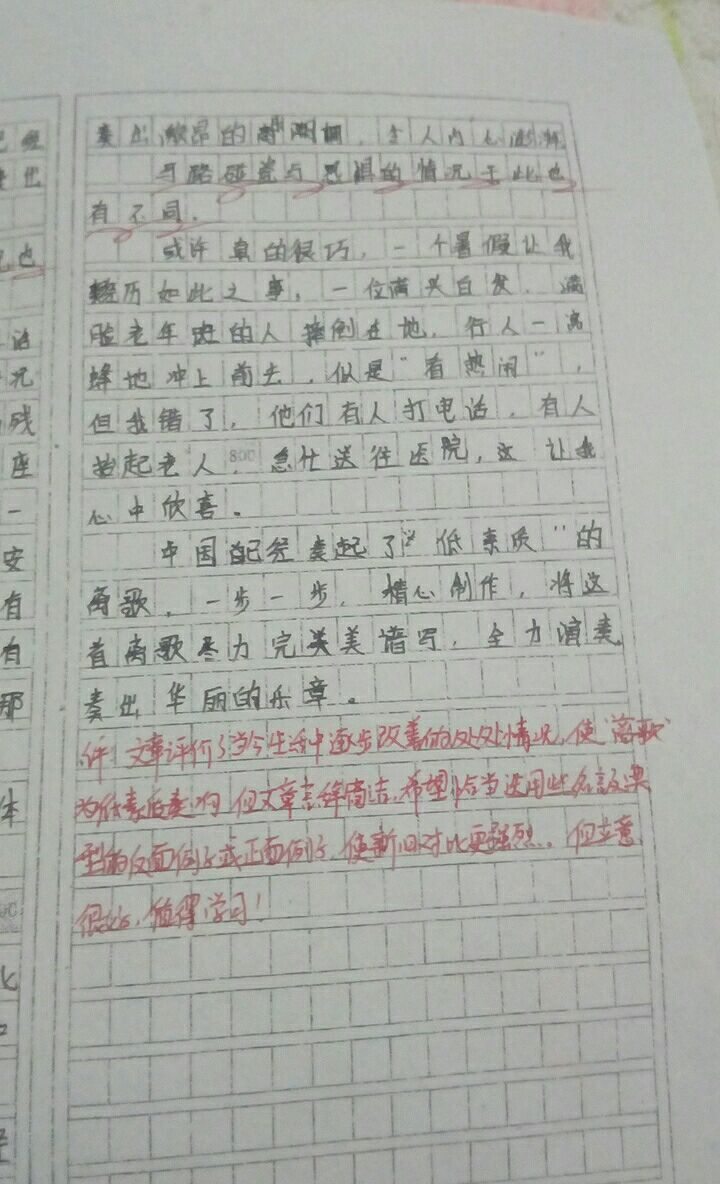 奏出激昂的高潮调，令人内心澎湃
马路碰瓷与恐惧的情况于此也
有不同．
或许真的很巧，一个暑假让我
经历如此之事，一位满头白发．满
脸老年斑的人摔倒在地．行人一窝
蜂地冲上前去，似是"看热闹"，
但我错了，他们有人打电话．有人
抬起老人，急忙送往医院，这让我
心中欣喜。
中国已经奏起了"低素质"的
离歌，一步一步．精心制作，将这
首离歌尽力完美谱写，全力演奏
奏出华丽的乐章。
评：文章评价了当今生活中逐步改善的处处情况，使"离歌"
为低素质奏响．但文章言辞简洁，希望恰当选用些名言及典
型的反面例子或正面例子，使新旧对比更强烈。但立意
很好，值得学习！
800
也
治
况
残
座
一
安
有
有
那
体
化